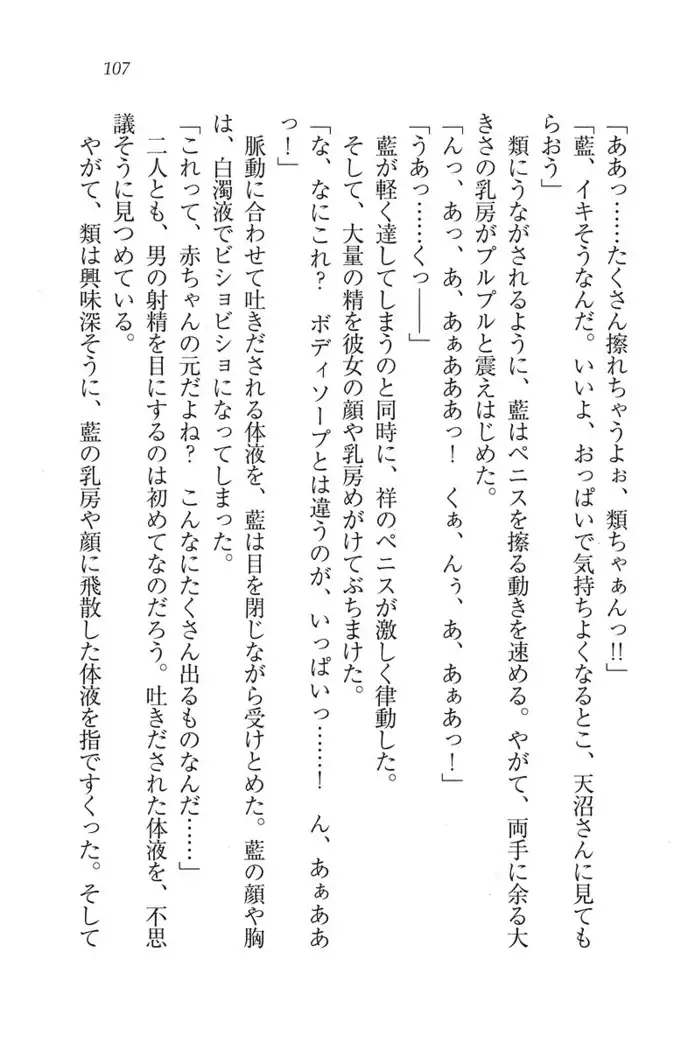 107
「ああっ……たくさん擦れちゃうよぉ、類ちゃぁんっ!!」
「藍、イキそうなんだ。いいよ、おっぱいで気持ちよくなるとこ、天沼さんに見ても
らおう」
　類にうながされるように、藍はペニスを擦る動きを速める。やがて、両手に余る大
きさの乳房がプルプルと震えはじめた。
「んっ、あっ、あ、あぁあああっ！　くぁ、んぅ、あ、あぁあっ！」
「うあっ……くっ――」
　藍が軽く達してしまうのと同時に、祥のペニスが激しく律動した。
　そして、大量の精を彼女の顔や乳房めがけてぶちまけた。
「な、なにこれ？　ボディソープとは違うのが、いっぱいっ……！　ん、あぁああ
っ！」
　脈動に合わせて吐きだされる体液を、藍は目を閉じながら受けとめた。藍の顔や胸
は、白濁液でビショビショになってしまった。
「これって、赤ちゃんの元だよね？　こんなにたくさん出るものなんだ……」
　二人とも、男の射精を目にするのは初めてなのだろう。吐きだされた体液を、不思
議そうに見つめている。
　やがて、類は興味深そうに、藍の乳房や顔に飛散した体液を指ですくった。そして